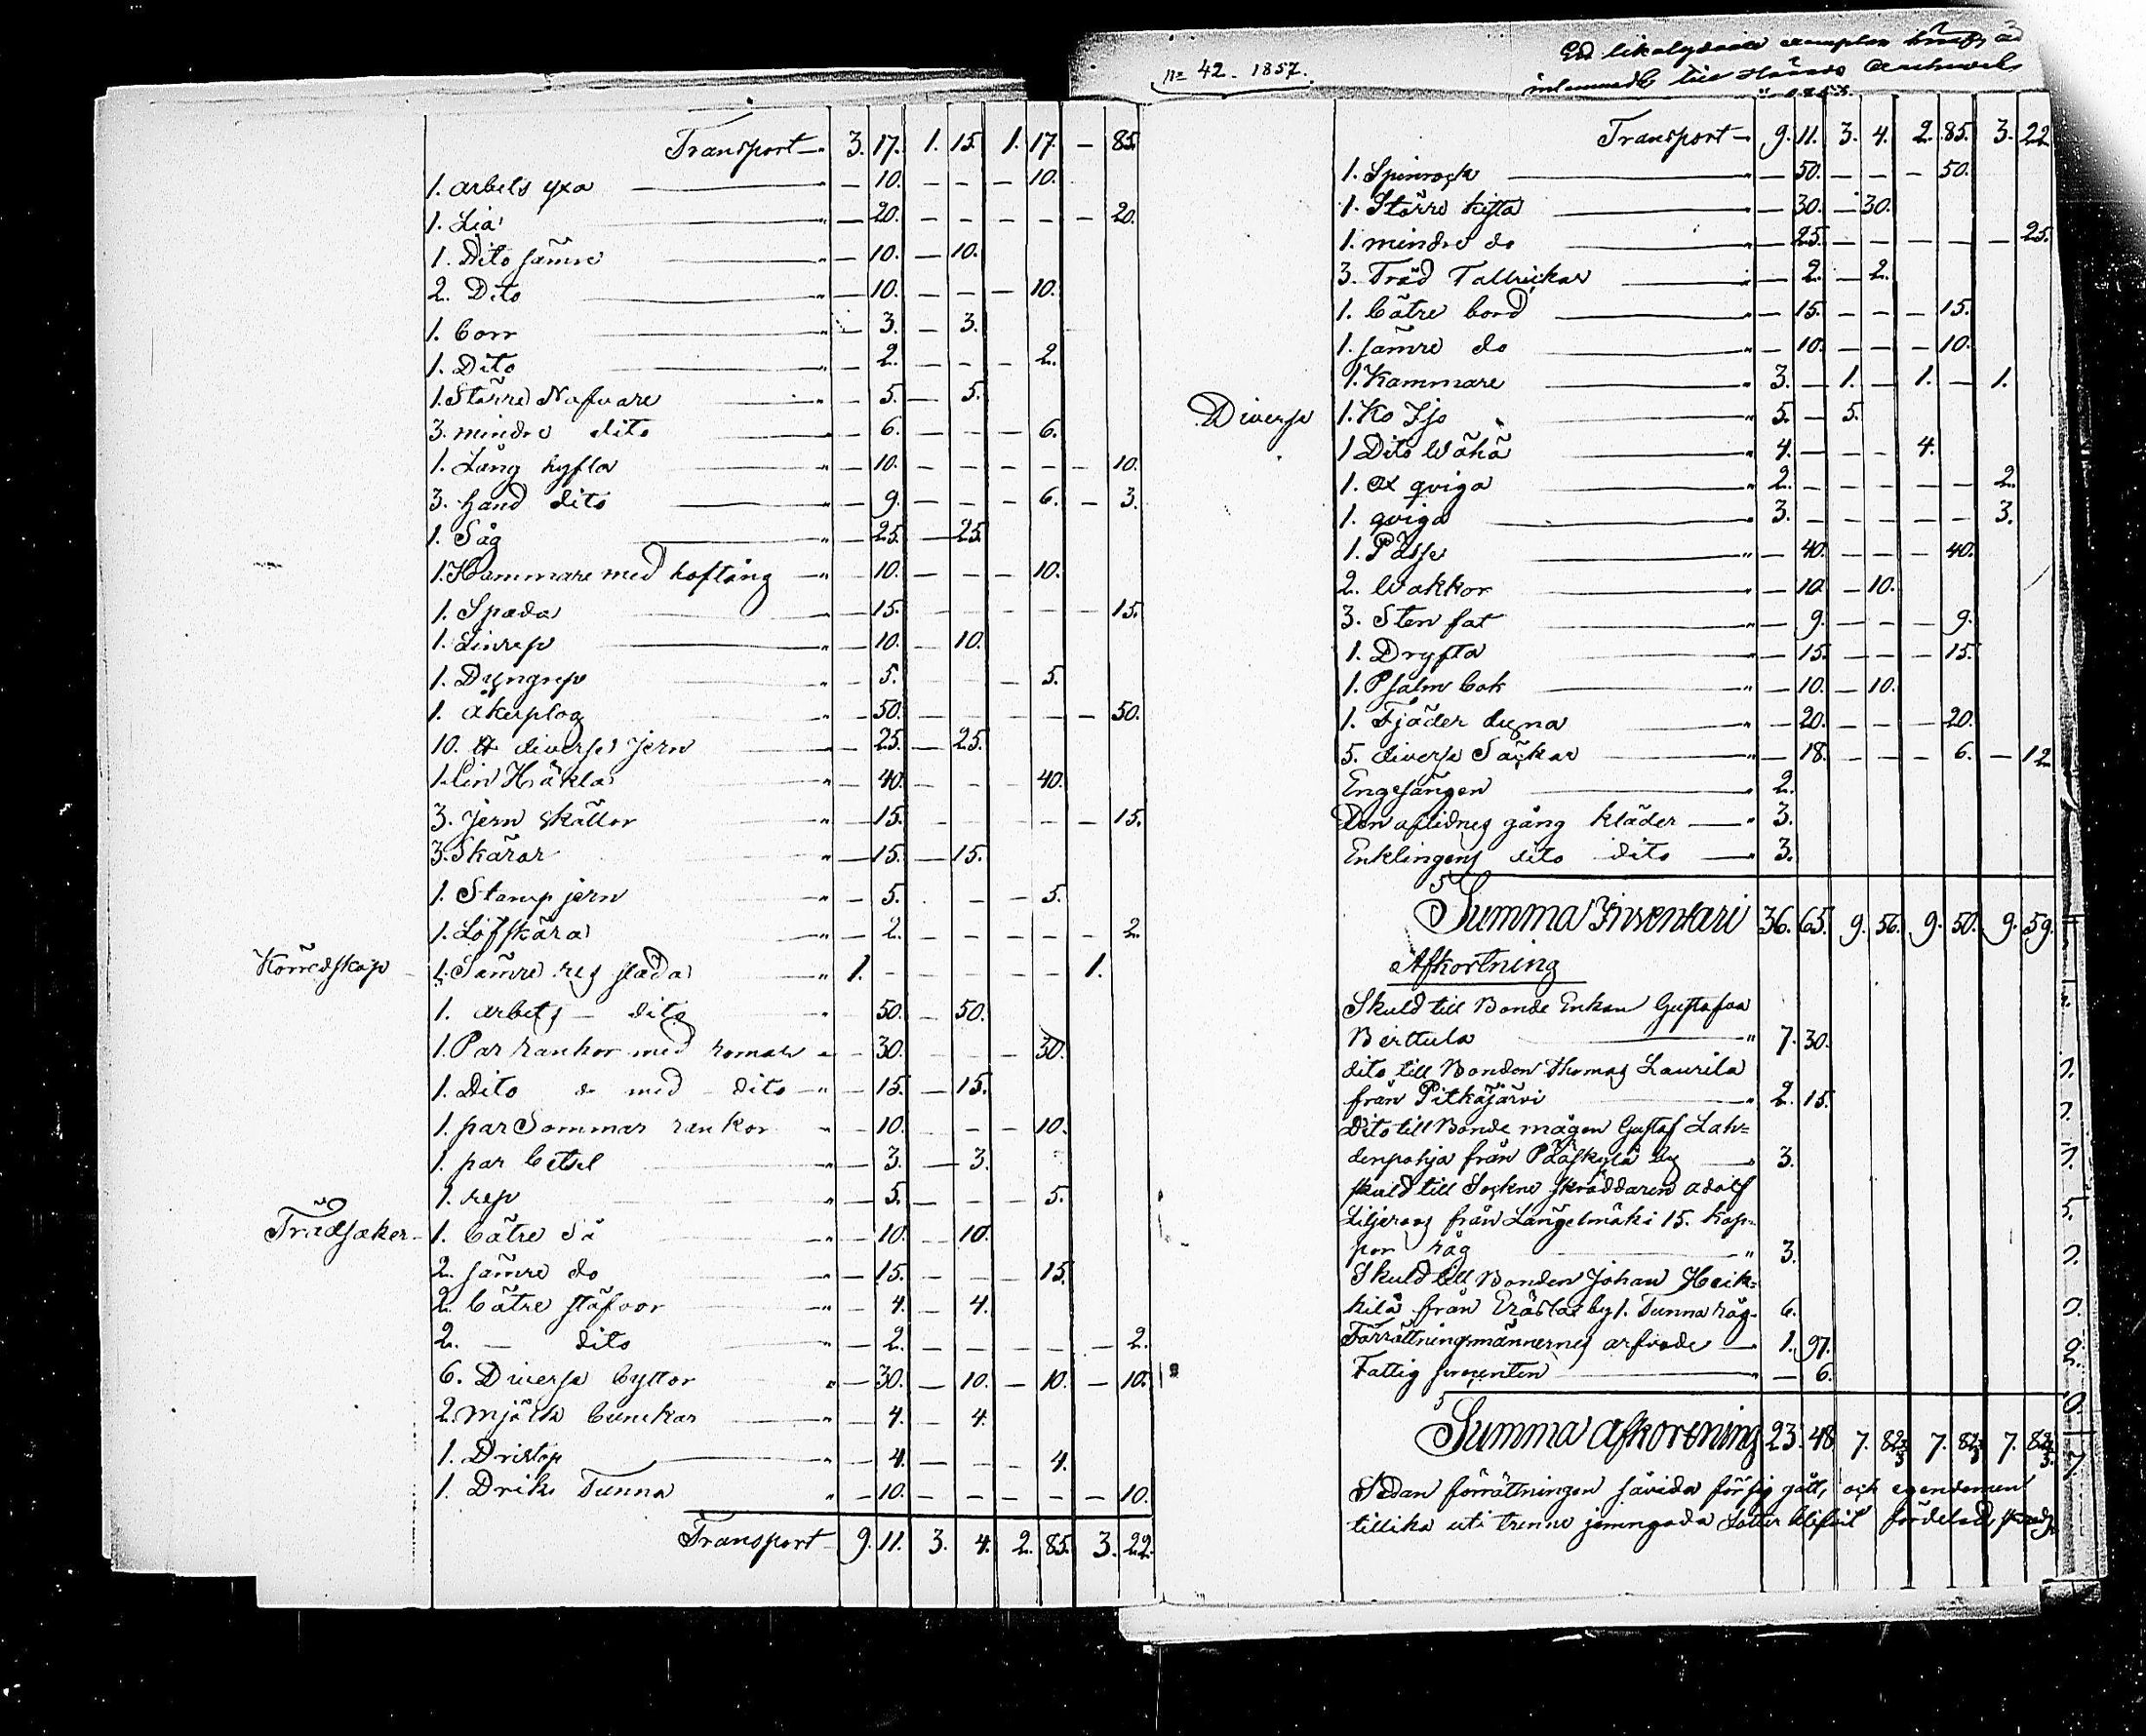 Transport 3. 17. 1. 15. 1. 17. - 85.
1. arbets yxa " - 10. - - - 10.
1. Lia " - 20. - - - - - 20.
1. Dito sämre " - 10. - 10.
2. Dito " - 10. - - - 10.
1. borr " - 3. - 3.
1. Dito " - 2. - - - 2.
1. Större Nafvare " - 5. - 5.
3. mindre dito " - 6. - - - 6.
1. Lång hyfla " - 10. - - - - - 10.
3. hand dito " - 9. - - - 6. - 3.
1. Såg " - 25. - 25.
1. Hammare med hoftång " - 10. - - - 10.
1. Spada " - 15. - - - - - 15.
1. Linrep " - 10. - 10.
1. Dyngrep " - 5. - - - 5.
1. åkerplog " - 50. - - - - - 50.
10. ℔ diverse jern " - 25. - 25.
1. Lin Häkla " - 40. - - - 40.
3. jern skällor " - 15. - - - - - 15.
3. Skäror " - 15. - 15.
1. Stamp jern " - 5. - - 5.
1. Löfskära " - 2. - - - - - 2.
Körredskap 1. Sämre res släda " 1. - - - - - 1.
1. arbets - dito " - 50. - 50.
1. Par rankor med romar " - 30. - - - 30.
1. Dito do med dito " - 15. - 15.
1. par Sommar rankor " - 10. - - - 10.
1. par betsel " - 3. - 3.
1. rep " - 5. - - - 5.
Trädsaker 1. bätre Så " - 10. - 10.
2. sämre do " - 15. - - - 15.
2. bätre stäfvor " - 4. - 4.
2. - dito " - 2. - - - - - 2.
6. Diverse byttor " - 30. - 10. - 10. - 10.
2. Mjölk bunckar " - 4. - 4.
1. Drixtop " - 4. - - - 4.
1. Driks Tunna " - 10. - - - - - 10.
Transport 9. 11. 3. 4. 2. 85. 3. 22.
No 42. 1857.
Ett likalydande exemplar
inlemnadt till Härads Archivet
Transport 9. 11. 3. 4. 2. 85. 3. 22.
1. Spinrock " - 50. - - - 50.
1. Större kista " - 30. - 30.
1. mindre do " - 25. - - - - - 25.
3. Träd Tallrickar " - 2. - 2.
1. bätre bord " - 15. - - - 15.
1. sämre do " - 10. - - - 10.
1. Kammare " 3. - 1. - 1. - 1.
Diverse 1. Ko Ijo " 5. - 5.
1 Dito Wähä " 4. - - - 4.
1. ox qviga " 2. - - - - - 2.
1. qviga " 3. - - - - - 3.
1. Påsse " - 40. - - - 40.
2. Wakkor " - 10. - 10.
3. Sten fat " - 9. - - - 9.
1. Dryfta " - 15. - - - 15.
1. Psalm bok " - 10. - 10.
1. Fjäder dyna " - 20. - - - 20.
5. diverse Säckar " - 18. - - - 6. - 12
Engesängen " 2.
Den aflidnes gång kläder " 3.
Enklingens dito dito " 3.
Summa Inventari 36. 65. 9. 56. 9. 50. 9. 59.
Afkortning
Skuld till Bonde Enkan Gustafva
Berttula " 7. 30.
dito till Bonden Thomas Laurila
från Pitkäjärvi " 2. 15.
Dito till Bonde mågen Gustaf Lah=
denpohja från Pääskylä by " 3.
skuld till Sockne skräddaren Adolf
Liljeroos från Längelmäki 15. kap=
par råg " 3.
Skuld till Bonden Johan Heik=
kilä från Eräslax by 1. Tunna råg 6.
Förrättningsmännernes arfvode 1. 97.
Fattig procenten " - 6.
Summa Afkortning 23. 48 7. 82 2/3 7. 82 2/3 7. 82 2/3.
Sedan förrättningen såvida försig gått, och egendomen
tillika uti trenne jemngoda Lotter blifvit fördelad